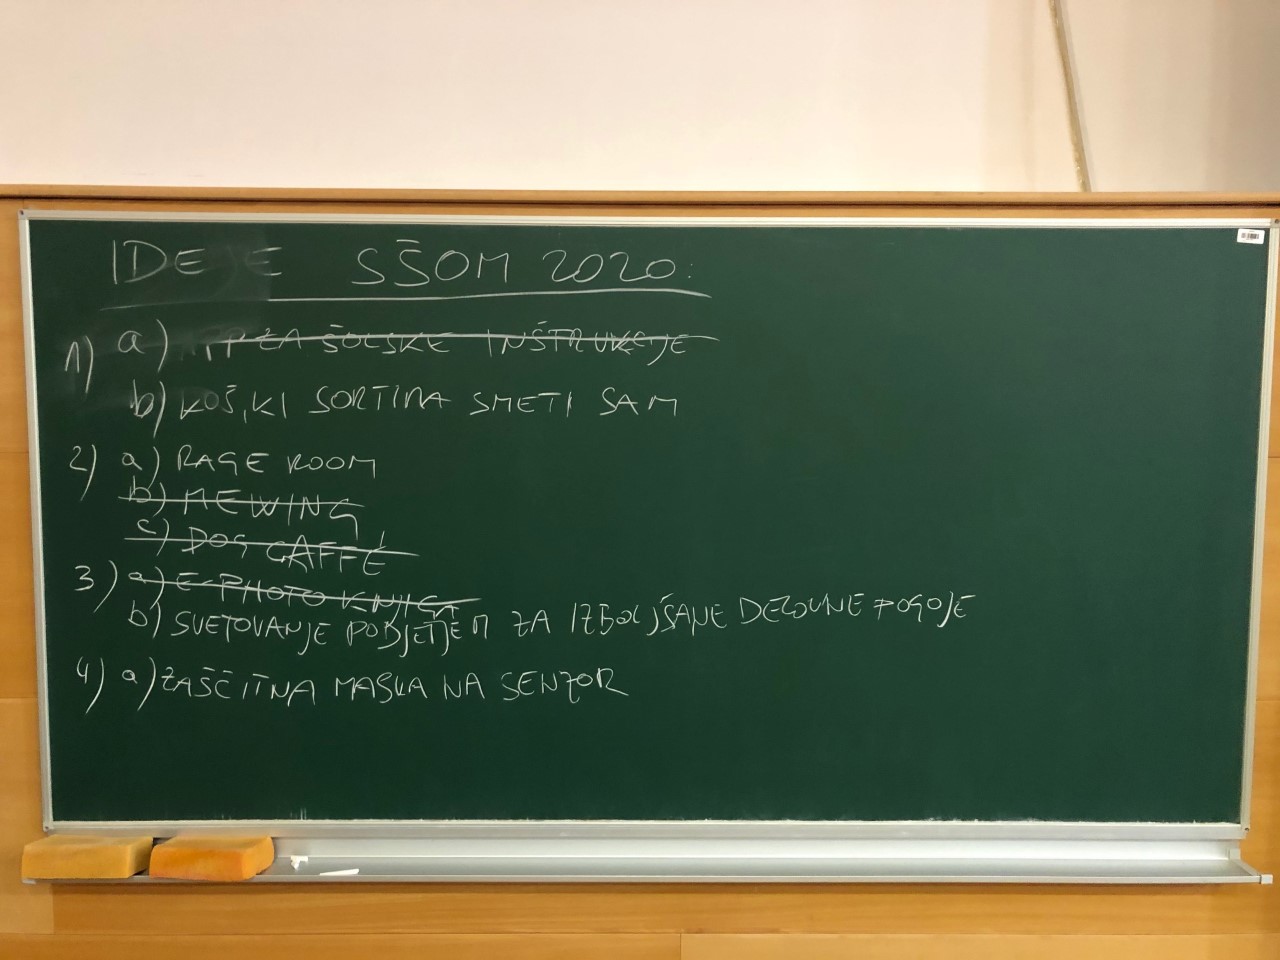 IDEJE SŠOM 2020:
1) a) APP ZA ŠOLSKE INŠTRUKCIJE
b) KOŠ, KI SORTIRA SMETI SAM
2) a) RAGE ROOM
b) MEWING
c) DOG CAFFÉ
3) a) E-PHOTO KNJIGA
b) SVETOVANJE PODJETJEM ZA IZBOLJŠANJE DELOVNE POGOJE
4) a) ZAŠČITNA MASKA NA SENZOR